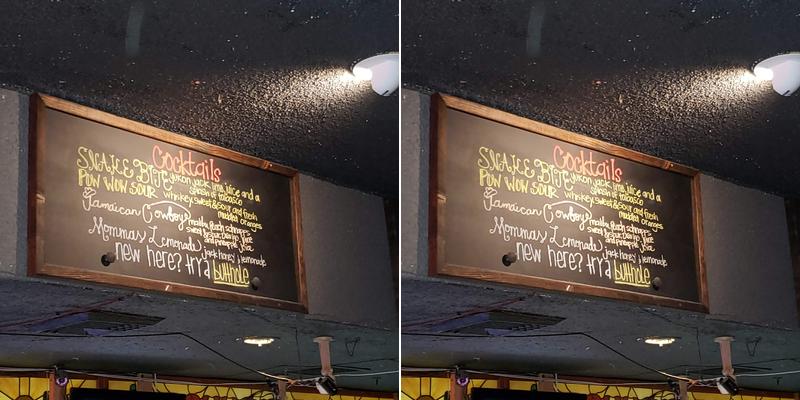 Cocktails
SNAKE BITE yukon jack, lime juice and a splash of tobasco
POW WOW SOUR whiskey, sweet & sour and fresh muddled oranges
Jamaican Cowboy malibu, peach schnapps, sweet & sour, orange juice and pineapple juice
Mommas Lemonade jack honey & lemonade
new here? try a butthole
Cocktails
SNAKE BITE yukon jack, lime juice and a splash of tobasco
POW WOW SOUR whiskey, sweet & sour and fresh muddled oranges
Jamaican Cowboy malibu, peach schnapps, sweet & sour, orange juice and pineapple juice
Mommas Lemonade jack honey & lemonade
new here? try a butthole